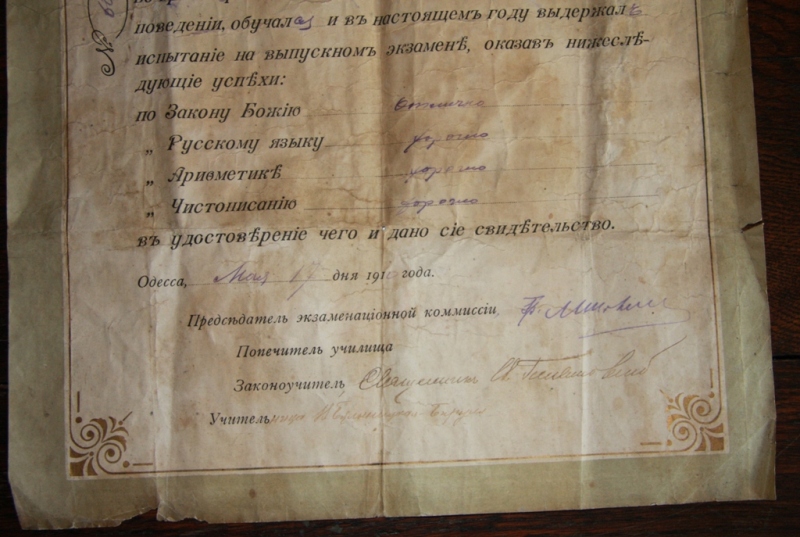 №
поведеніи, обучалась и въ настоящемъ году выдержала
испытаніе на выпускномъ экзаменѣ, оказавъ нижеслѣ-
дующіе успѣхи:
по Закону Божію отлично
„ Русскому языку хорошо
„ Ариѳметикѣ хорошо
„ Чистописанію хорошо
въ удостовѣреніе чего и дано сіе свидѣтельство.
Одесса, Мая дня 191 года.
Предсѣдатель экзаменаціонной коммиссіи
Попечитель училища
Законоучитель Священникъ
Учительница